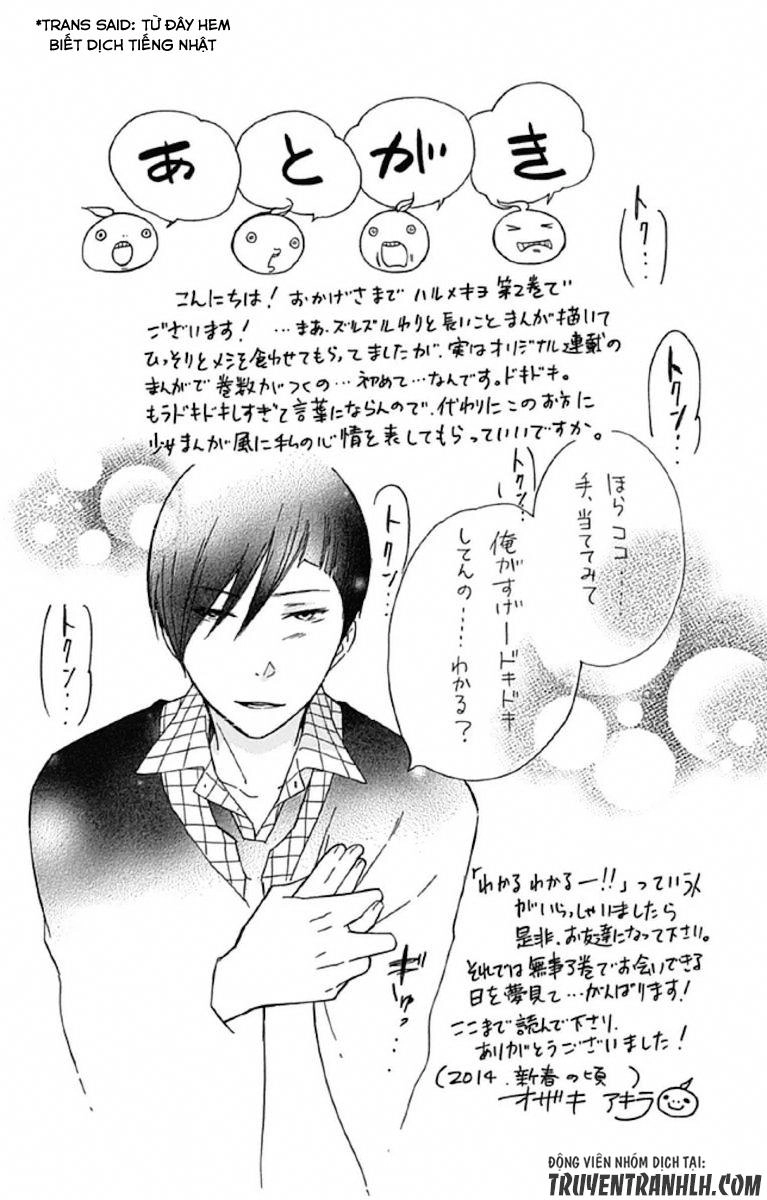 *TRANS SAID: TỪ ĐÂY HEM
BIẾT DỊCH TIẾNG NHẬT
あとがき
トクン…
こんにちは！おかげさまで ハルメキヨ 第2巻で
ございます！…まあ、ズルズルわりと長いことまんが描いて
ひっそりとメシを食わせてもらってましたが、実はオリジナル連載の
まんがで巻数がつくの…初めて…なんです。ドキドキ。
もうドキドキしすぎて言葉にならんので、代わりにこのお方に
少女まんが風に私の心情を表してもらっていいですか。
トクン…
トクン…
ほらココ……
手、当ててみて
俺がすげードキドキ
してんの……わかる？
トクン…
トクン…
ぎゅっ…
「わかるわかるー!!」っていう人
がいらっしゃいましたら
是非、お友達になって下さい。
それでは無事3巻でお会いできる
日を夢見て…がんばります！
ここまで読んで下さり、
ありがとうございました！
(2014.新春の頃 )
オザキ アキラ
ĐỘNG VIÊN NHÓM DỊCH TẠI:
TRUYENTRANHLH.COM